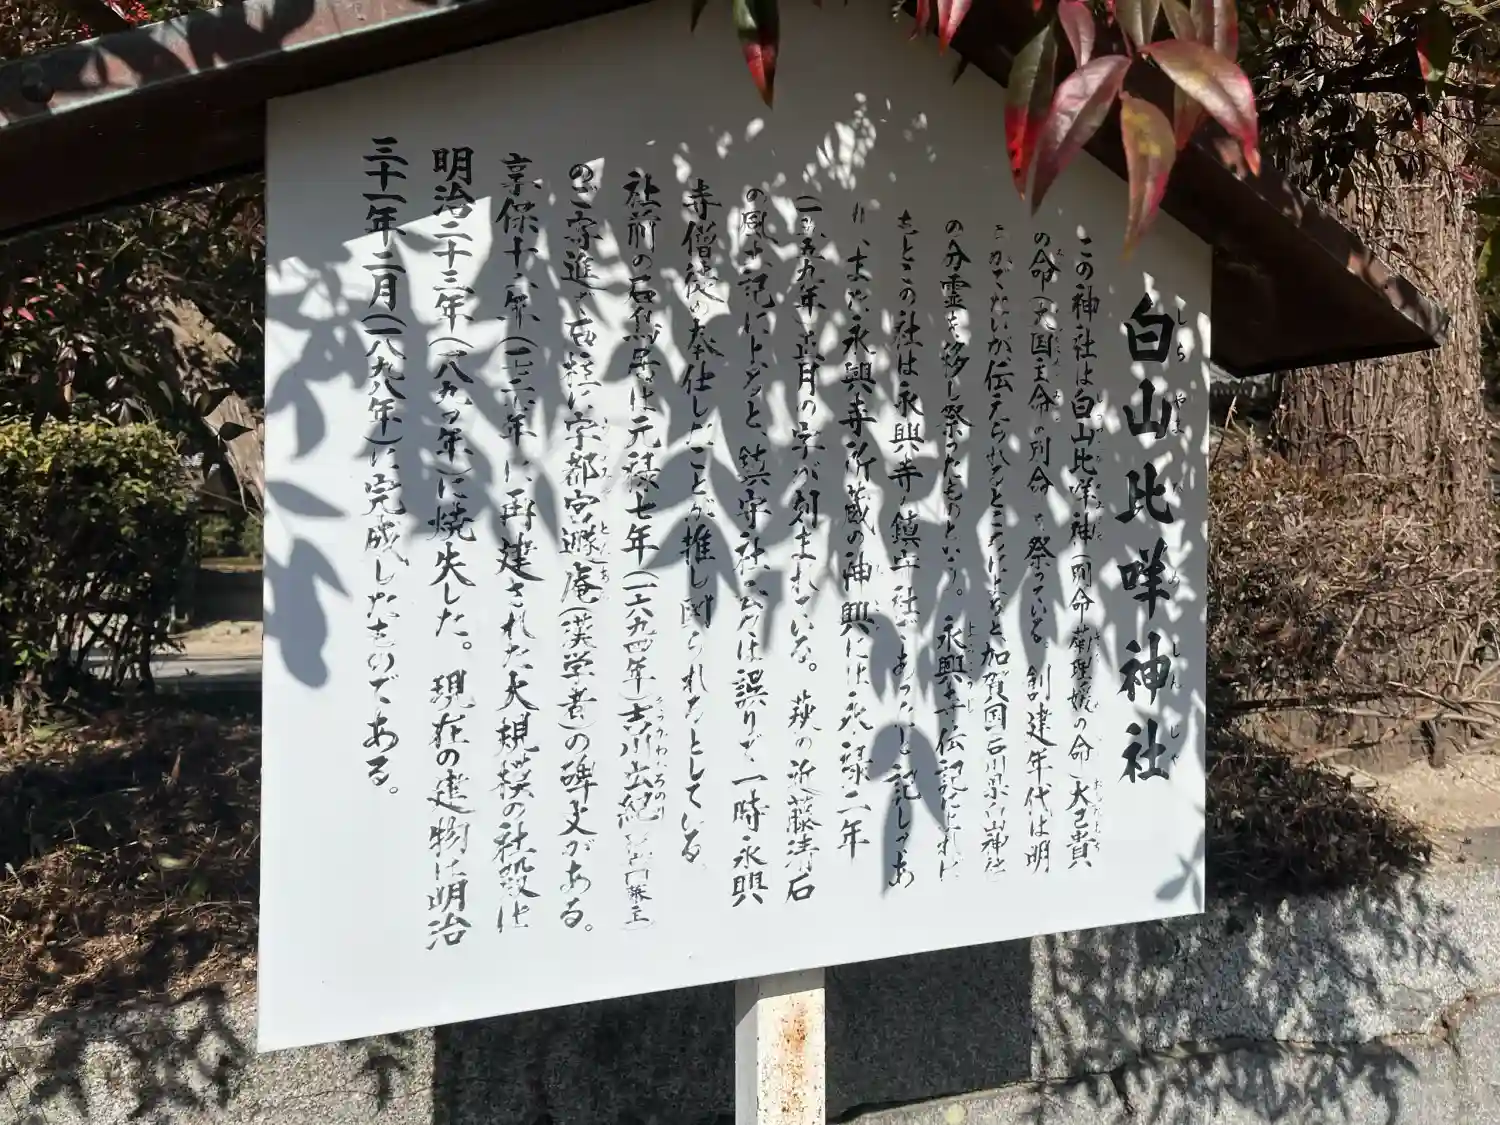 白山比咩神社
しらやまひめしんじゃ
この神社は白山比咩神(別命 菊理媛の命)大己貴
の命(大国主命の別命)を祭っている。創建年代は明
らかでないが伝えられるところによると加賀国石川県白山神社
の分霊を移し祭ったものという。永興寺伝記によれば
もとこの社は永興寺の鎮守社であったと記してあ
り、また永興寺所蔵の神輿には永禄二年
(一五五九年)正月の字が刻まれている。萩の近藤清石
の風土記によると、鎮守社云々は誤りで一時永興
寺僧徒の奉仕したことが推し測られるとしている。
社前の石鳥居は元禄七年(一六九四年)吉川広紀
のご寄進で石柱に宇都宮遯庵(漢学者)の碑文がある。
享保十一年(一七二六年)に再建された大規模の社殿は
明治二十三年(一八九〇年)に焼失した。現在の建物は明治
三十一年二月(一八九八年)に完成したものである。